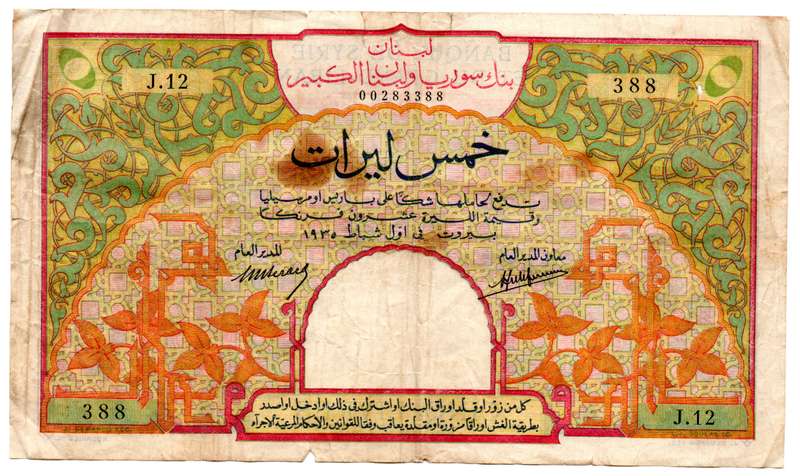 لبنان
بنك سوريا ولبنان الكبير
J.12
388
00283388
خمس ليرات
تدفع لحاملها شكًا على باريس او مرسيليا
وقيمة الليرة عشرون فرنكًا
بيروت في اول شباط ١٩٣٥
معاون المدير العام
المدير العام
كل من زوّر او قلّد اوراق البنك او اشترك في ذلك او ادخل او اصدر
بطريقة الغش اوراقًا مزورة او مقلدة يعاقب وفقا للقوانين والاحكام المرعية الاجراء
388
J.12